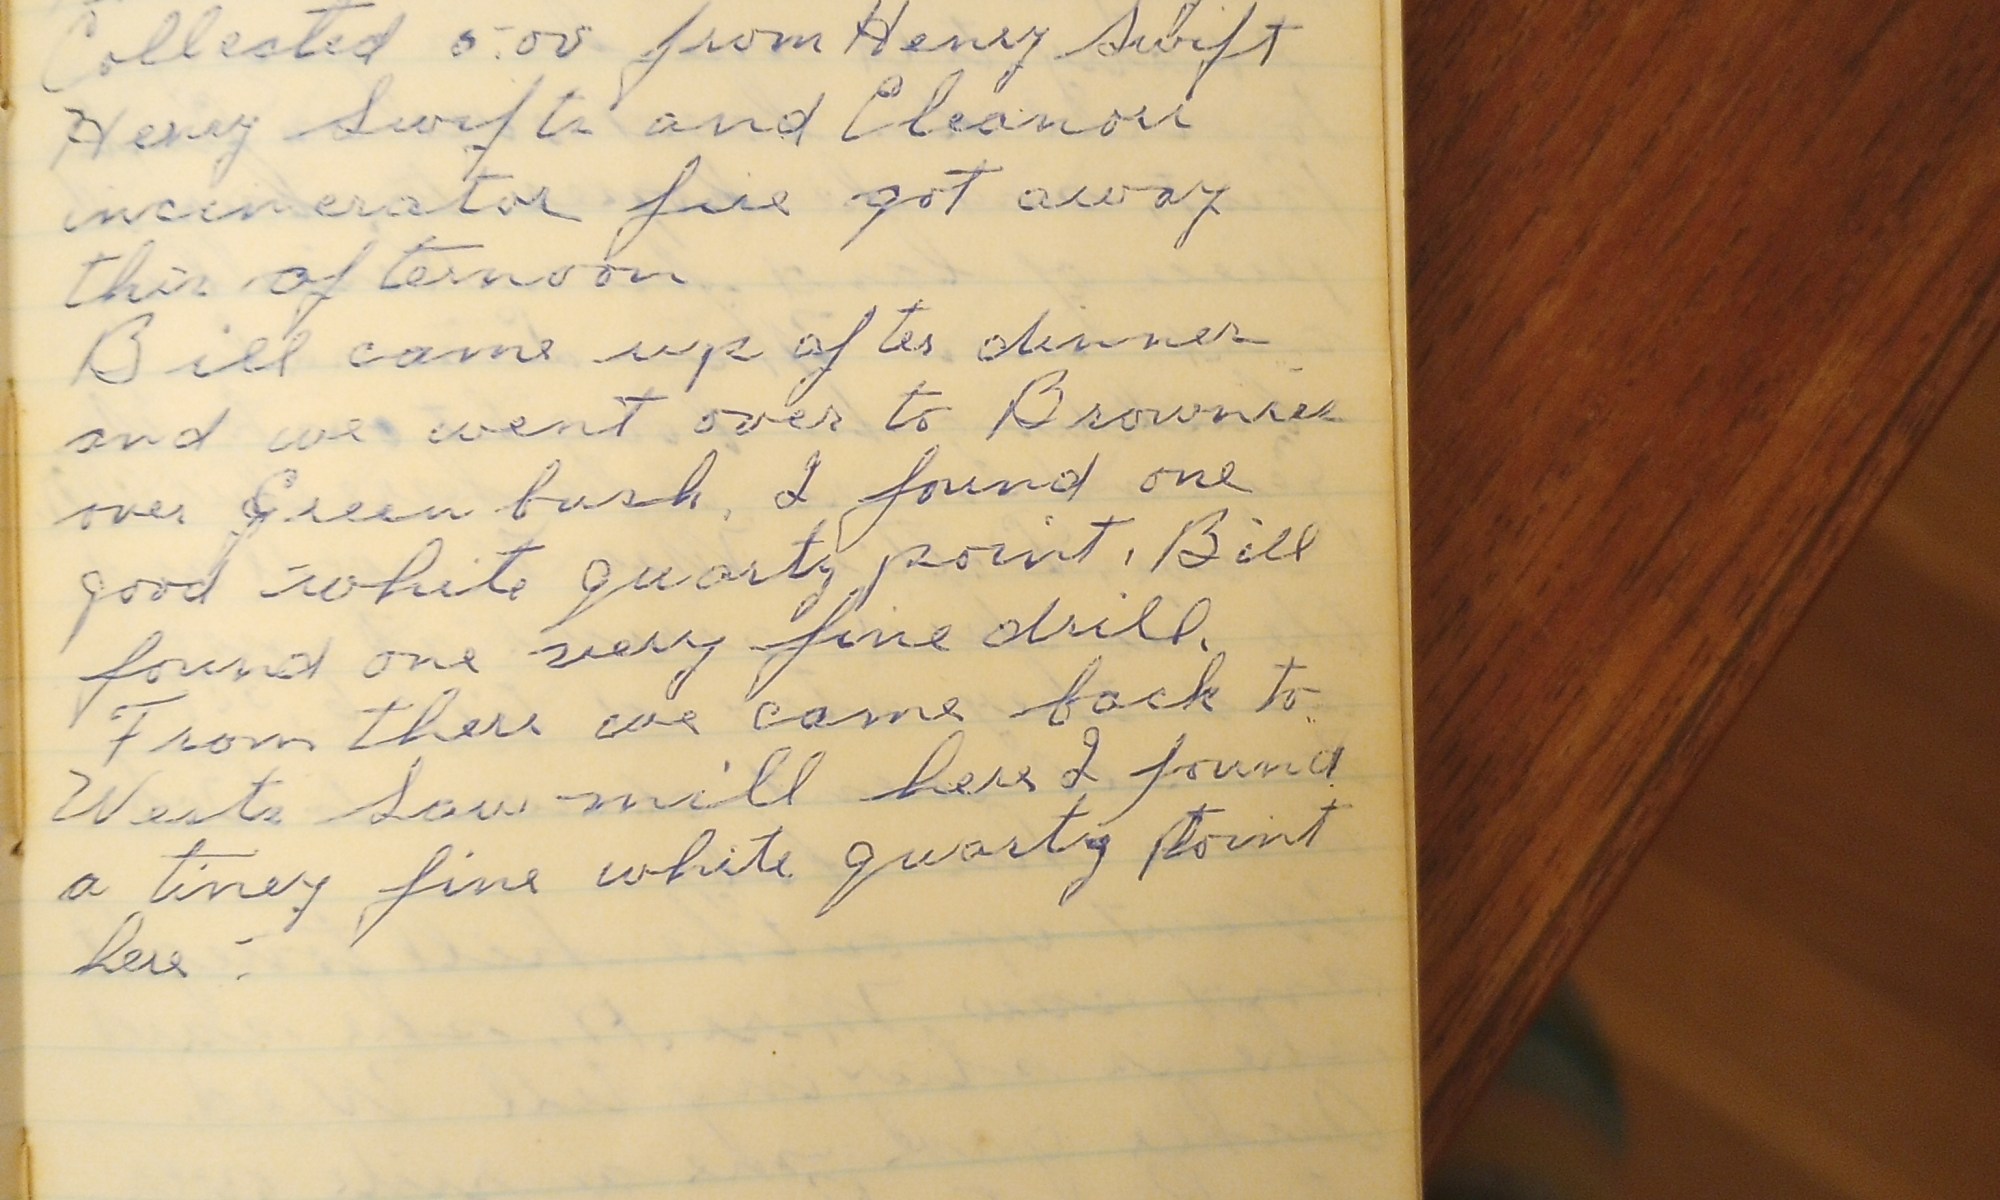 Collected 5.00 from Henry Swift
Henry Swifts and Eleanor
incinerator fire got away
this afternoon
Bill came up after dinner
and we went over to Brownies
over Greenbush. I found one
good white quartz point. Bill
found one very fine drill.
From there we came back to
Wests Saw mill here I found
a tiney fine white quartz Point
here.